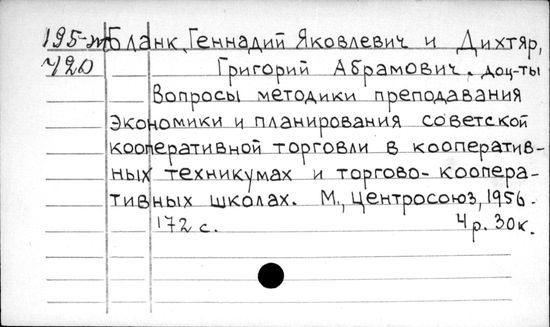 195-m Бланк, Геннадий Яковлевич и Дихтяр,
420 Григорий Абрамович, доц-ты
Вопросы методики преподавания
экономики и планирования советской
кооперативной торговли в кооператив-
ных техникумах и торгово-коопера-
тивных школах. М., Центросоюз, 1956.
172 с. 4 р. 30 к.